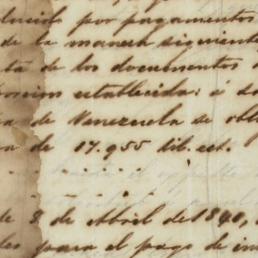 por pagamentos
de la manera siguiente
ta de los documentos
establecida: á
a de Venezuela se
on de 17.955 lib. est.
de 8 de Abril de 1840,
para el pago de in